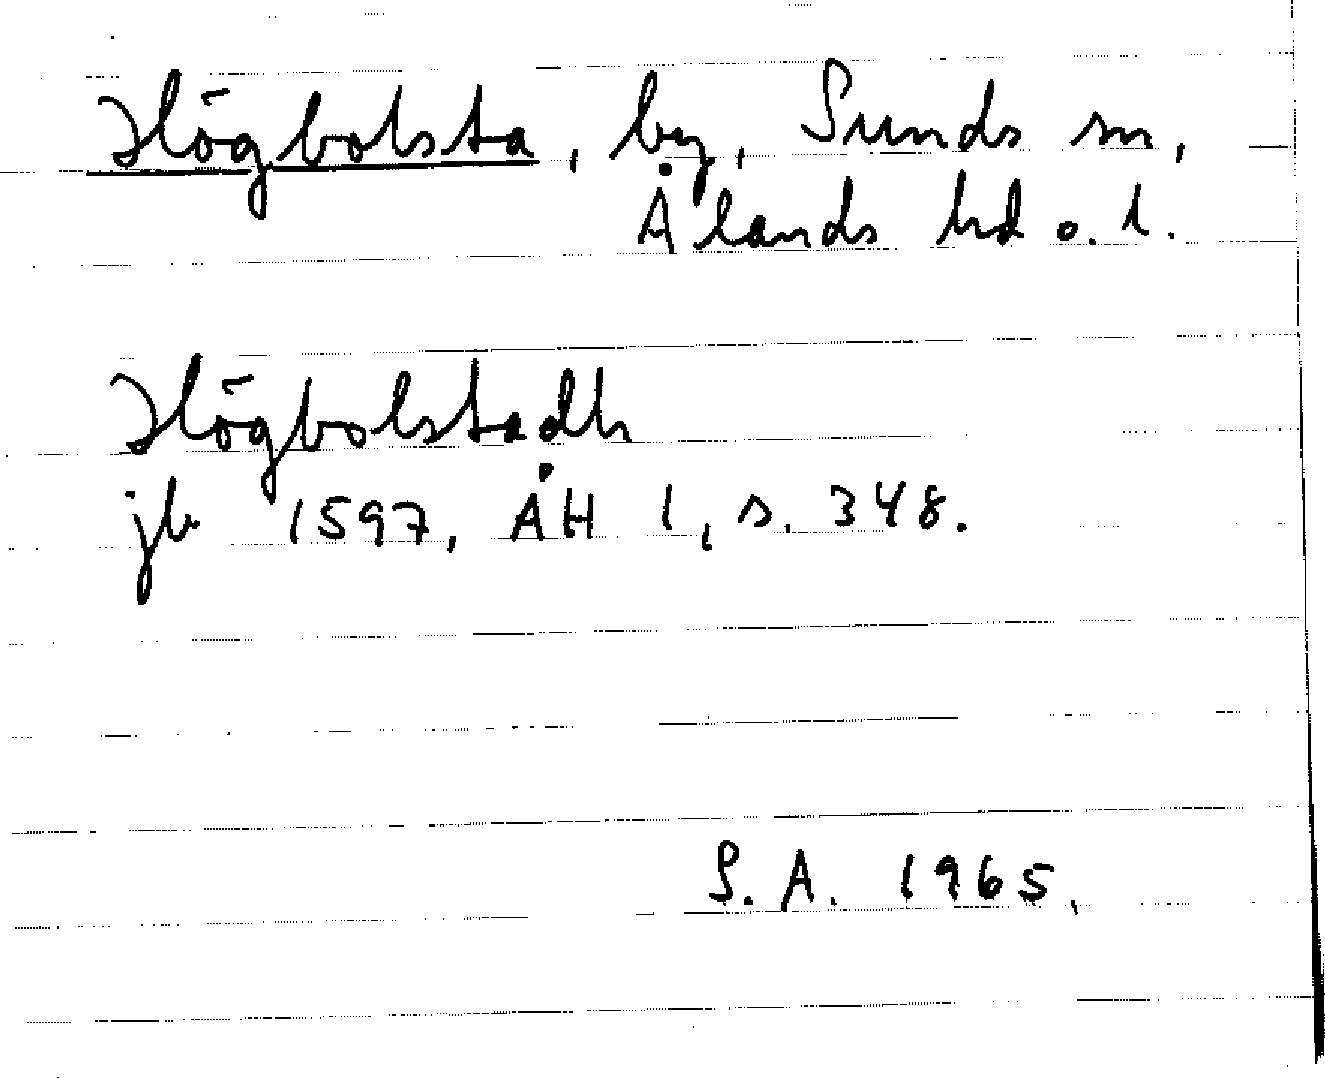 Högbolsta, by, Sunds sn,
Ålands hd o. l.
Högbolstadh
jb 1597, ÅH 1, s. 348.
S. A. 1965.